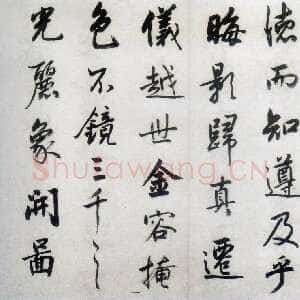 德而知遵及乎
晦影歸真遷
儀越世金容掩
色不鏡三千之
光麗象開圖
Shufawang.CN